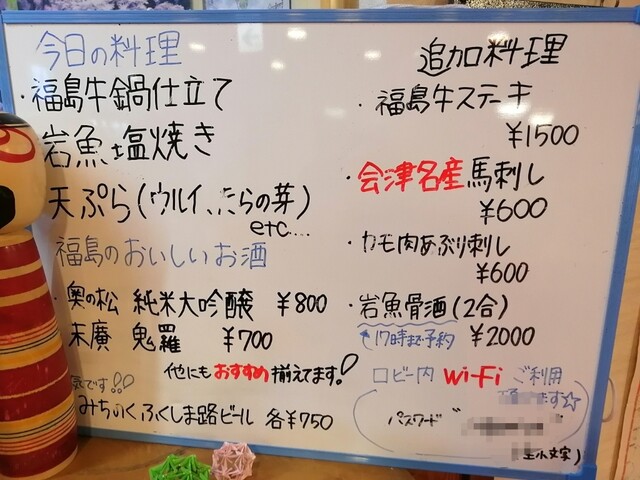 今日の料理
・福島牛鍋仕立て
岩魚塩焼き
天ぷら(ウルイ、たらの芽)
etc....
福島のおいしいお酒
・奥の松 純米大吟醸 ¥800
末廣 鬼羅 ¥700
他にもおすすめ揃えてます!
気です!!
みちのくふくしま路ビール 各¥750
追加料理
・福島牛ステーキ
¥1500
・会津名産馬刺し
¥600
・カモ肉あぶり刺し
¥600
・岩魚骨酒(2合)
17時まで予約 ¥2000
ロビー内 Wi-Fi ご利用
ます☆
パスワード"
小文字)